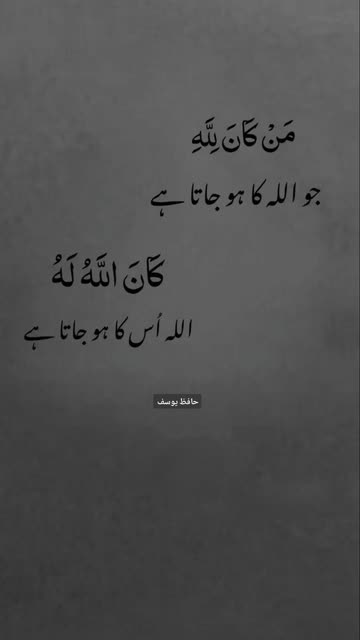 مَنْ كَانَ لِلَّهِ
جو اللہ کا ہو جاتا ہے
كَانَ اللَّهُ لَهُ
اللہ اُس کا ہو جاتا ہے
حافظ یوسف